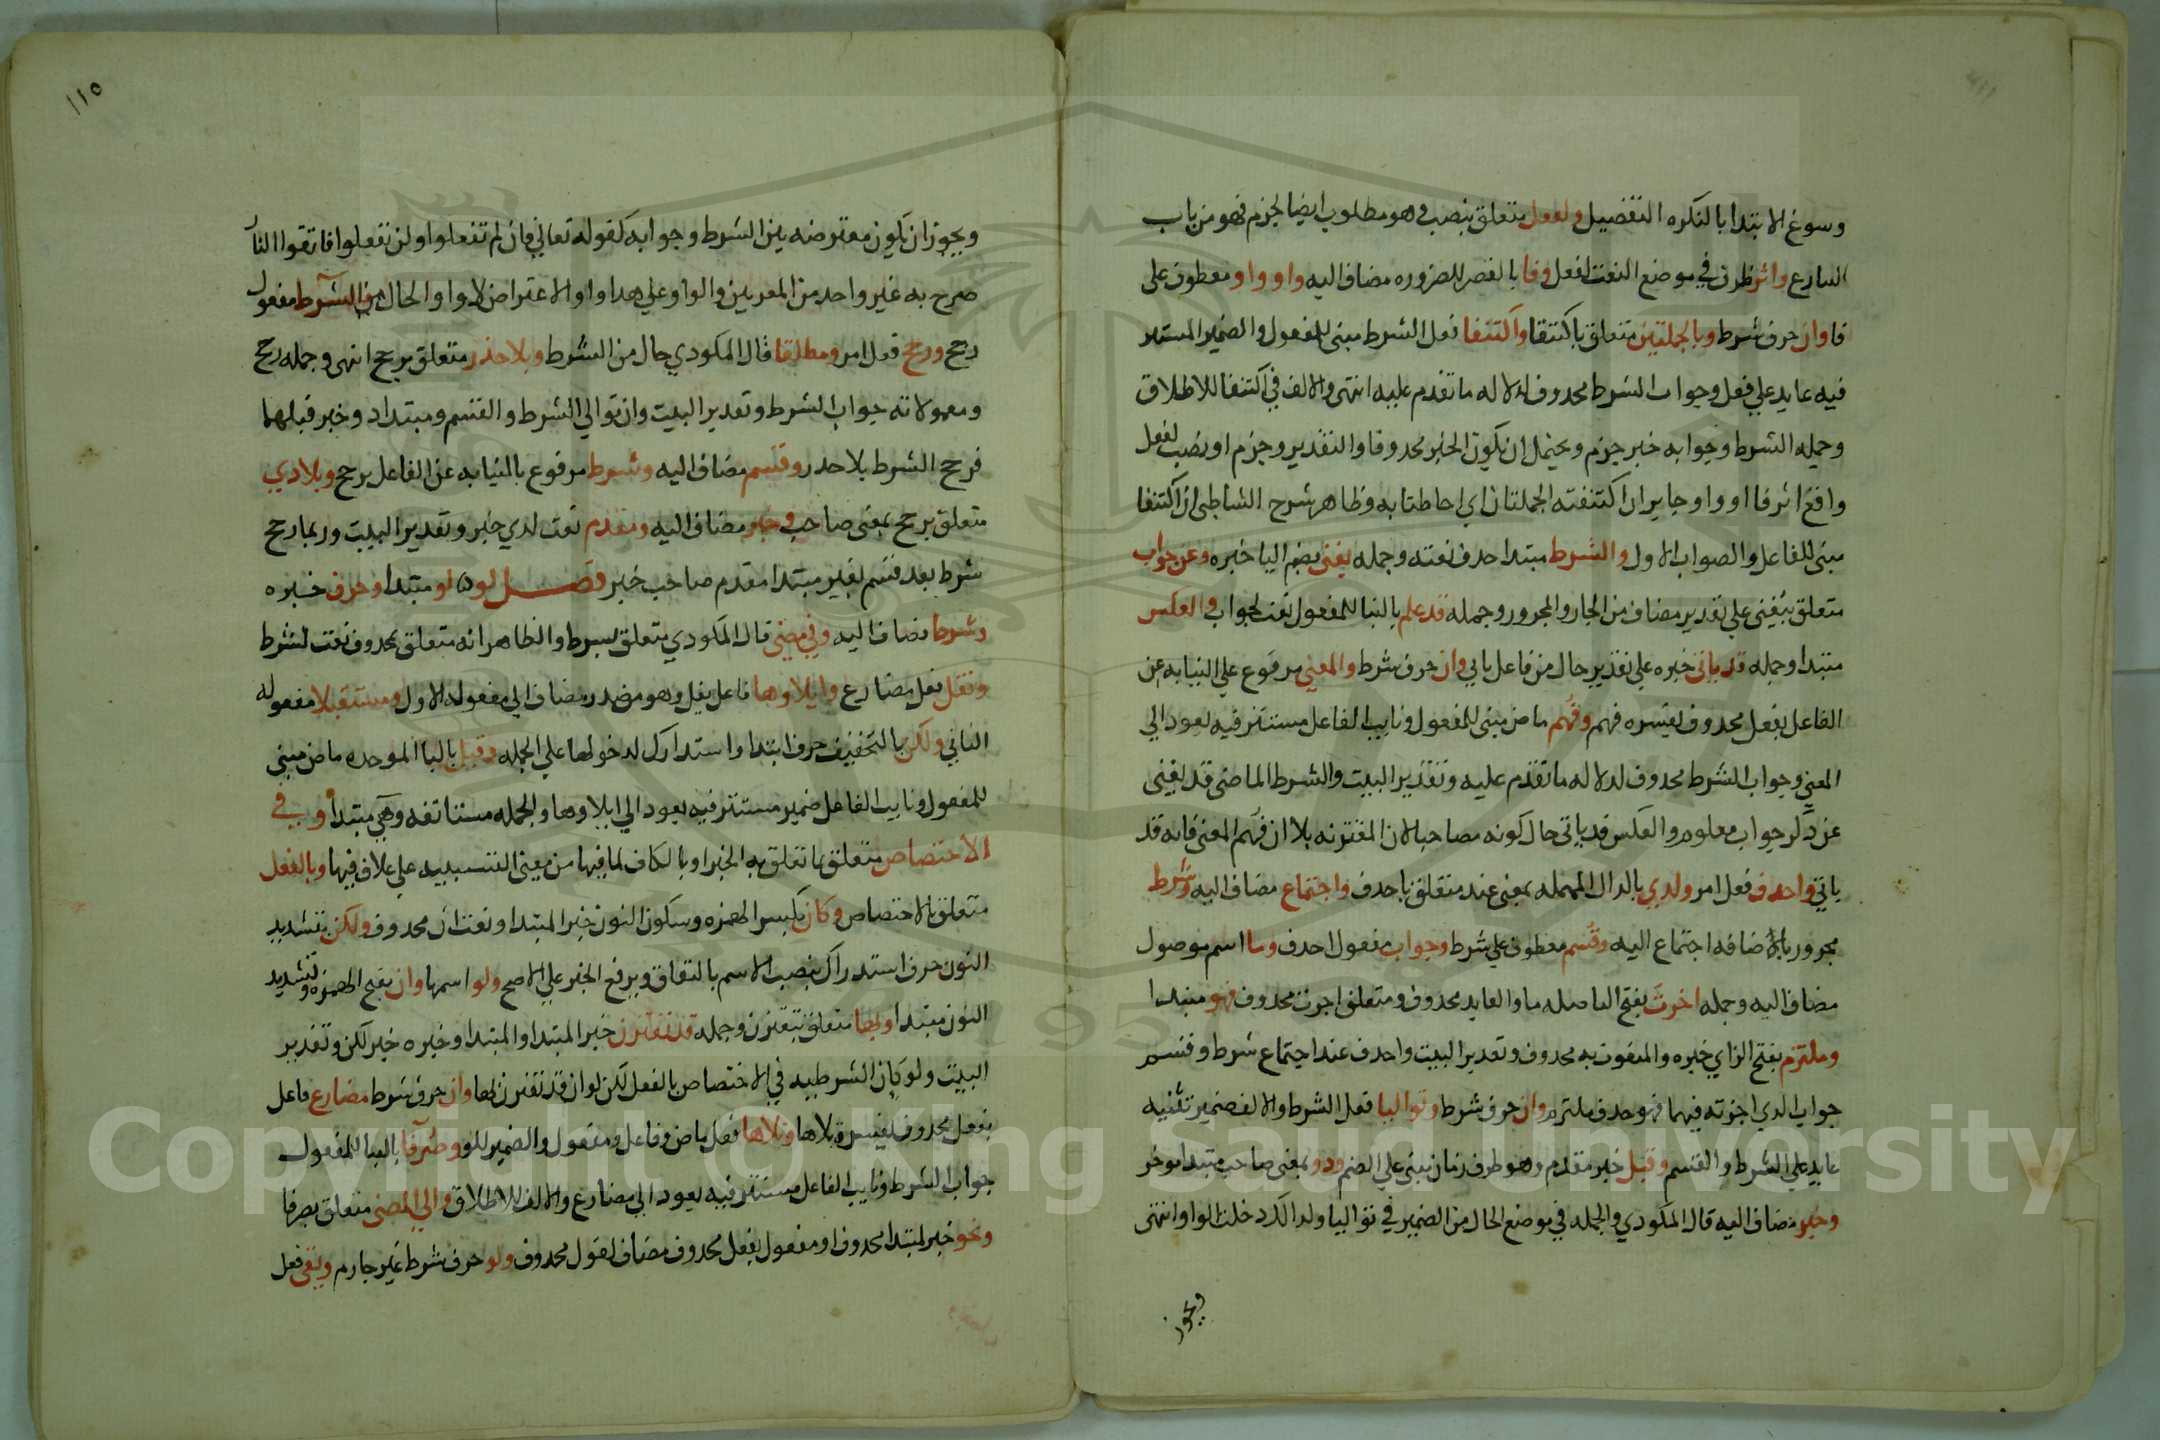 وسوغ الابتدا بالنكره التفصيل ولفعل متعلق بنصب وهو مطلوب ايضا لجزم فهو من باب
التنازع واثر ظرف في موضع النعت لفعل وفا بالقصر للضروره مضاف اليه واو واو معطوف على
فا وان حرف شرط وبالجملتين متعلق باكتنفا واكتنفا فعل الشرط مبنى للمفعول والضمير المستتر
فيه عايد علي فعل وجواب الشرط محدوف لدلاله ما تقدم عليه انتهى والالف في اكتنفا للاطلاق
وجمله الشرط وجوابه خبر جزم ويحتمل ان يكون الخبر محدوفا والتقدير وجزم او نصب لفعل
واقع اثر فا او واو جايز ان اكتنفته الجملتان اي احاطتا به وظاهر شرح الشاطبى ان اكتنفا
مبنى للفاعل والصواب الاول والشرط مبتدا حدف نعته وجمله يغنى بضم اليا خبره وعن جواب
متعلق بيغنى علي تقدير مضاف من الجار والمجرور وجمله قد علم بالبنا للمفعول نعت لجواب والعكس
مبتدا وجمله قد ياتى خبره علي تقدير حال من فاعل ياتي وان حرف شرط والمعني مرفوع علي النيابه عن
الفاعل بفعل محدوف يفسره فهم وفهم ماض مبنى للمفعول ونايب الفاعل مستتر فيه يعود الي
المعني وجواب الشرط محدوف لدلاله ما تقدم عليه وتقدير البيت والشرط الماضى قد يغنى
عن دكر جواب معلوم والعكس قد ياتى حال كونه مصاحبا لان المقترنه بلا ان فهم المعنى فانه قد
ياتي واحدف فعل امر ولدي بالدال المهمله بمعنى عند متعلق باحدف واجتماع مضاف اليه وشرط
مجرور بالاضافه اجتماع اليه وقسم معطوف علي شرط وجواب مفعول احدف وما اسم موصول
مضاف اليه وجمله اخرت بفتح التا صله ما والعايد محدوف ومتعلق اخرت محدوف فهو مبتدا
وملتزم بفتح الزاي خبره والمنعوت به محدوف وتقدير البيت واحدف عند اجتماع شرط وقسم
جواب الدي اخرته فيهما فهو حدف ملتزم وان حرف شرط وتواليا فعل الشرط والالف ضمير تثنيه
عايد علي الشرط والقسم وقبل خبر مقدم وهو ظرف زمان مبنى علي الضم ودو بمعنى صاحب مبتدا موخر
وخبر مضاف اليه قال المكودي والجمله في موضع الحال من الضمير في تواليا ولدالك دخلت الواو انتهى
ويجوز
١١٥
ويجوز ان يكون معترضه بين الشرط وجوابه كقوله تعالي فان لم تفعلوا ولن تفعلوا فاتقوا النار
صرح به غير واحد من المعربين والواو علي هدا واو الاعتراض لا واو الحال فالشرط مفعول
رجح ورجح فعل امر ومطلقا قال المكودي حال من الشرط وبلا حذر متعلق برجح انتهى وجمله رجح
ومعمولاته جواب الشرط وتقدير البيت وان توالي الشرط والقسم ومبتدا دو خبر قبلهما
فرجح الشرط بلا حدر وقسم مضاف اليه وشرط مرفوع بالنيابه عن الفاعل برجح وبلا دي
متعلق برجح بمعنى صاحب وخبر مضاف اليه ومقدم نعت لدي خبر وتقدير البيت وربما رجح
شرط بعد قسم بغير مبتدا مقدم صاحب خبر فصل لو لو مبتدا وحرف خبره
وشرط مضاف اليه وفي مضى قال المكودي متعلق بشرط والظاهر انه متعلق بمحدوف نعت لشرط
وتقل فعل مضارع وايلاوها فاعل يقل وهو مصدر مضاف الي مفعوله الاول ومستقبلا مفعوله
الثاني ولكن بالتخفيف حرف ابتدا واستدراك لدخولها علي الجمله وقبل بالبا الموحده ماض مبنى
للمفعول ونايب الفاعل ضمير مستتر فيه يعود الي ايلاوها والجمله مستانفه وهي مبتدا وفي
الاختصاص متعلق بما تعلق به الخبر او بالكاف لما فيها من معنى التشبيه علي خلاف فيها وبالفعل
متعلق بالاختصاص وكان بكسر الهمزه وسكون النون خبر المبتدا ونعت ان محدوف ولكن بتشديد
النون حرف استدراك ينصب الاسم بالتفاق ويرفع الخبر علي الاصح ولو اسمها وان بفتح الهمزه وتشديد
النون مبتدا وبها متعلق بتقترن وجمله قد تقترن خبر المبتدا والمبتدا وخبره خبر لكن وتقدير
البيت ولو كان الشرطيه في الاختصاص بالفعل لكن لو ان قد تقترن بها وان حرف شرط مضارع فاعل
بفعل محدوف يفسره تلاها وتلاها فعل ماض وفاعل ومفعول والضمير للو وصرفا بالبنا للمفعول
جواب الشرط ونايب الفاعل مستتر فيه يعود الي مضارع والالف للاطلاق والي المضى متعلق بصرفا
ونحو خبر لمبتدا محدوف او مفعول بفعل محدوف مضاف لقول محدوف ولو حرف شرط غير جازم ويفى فعل